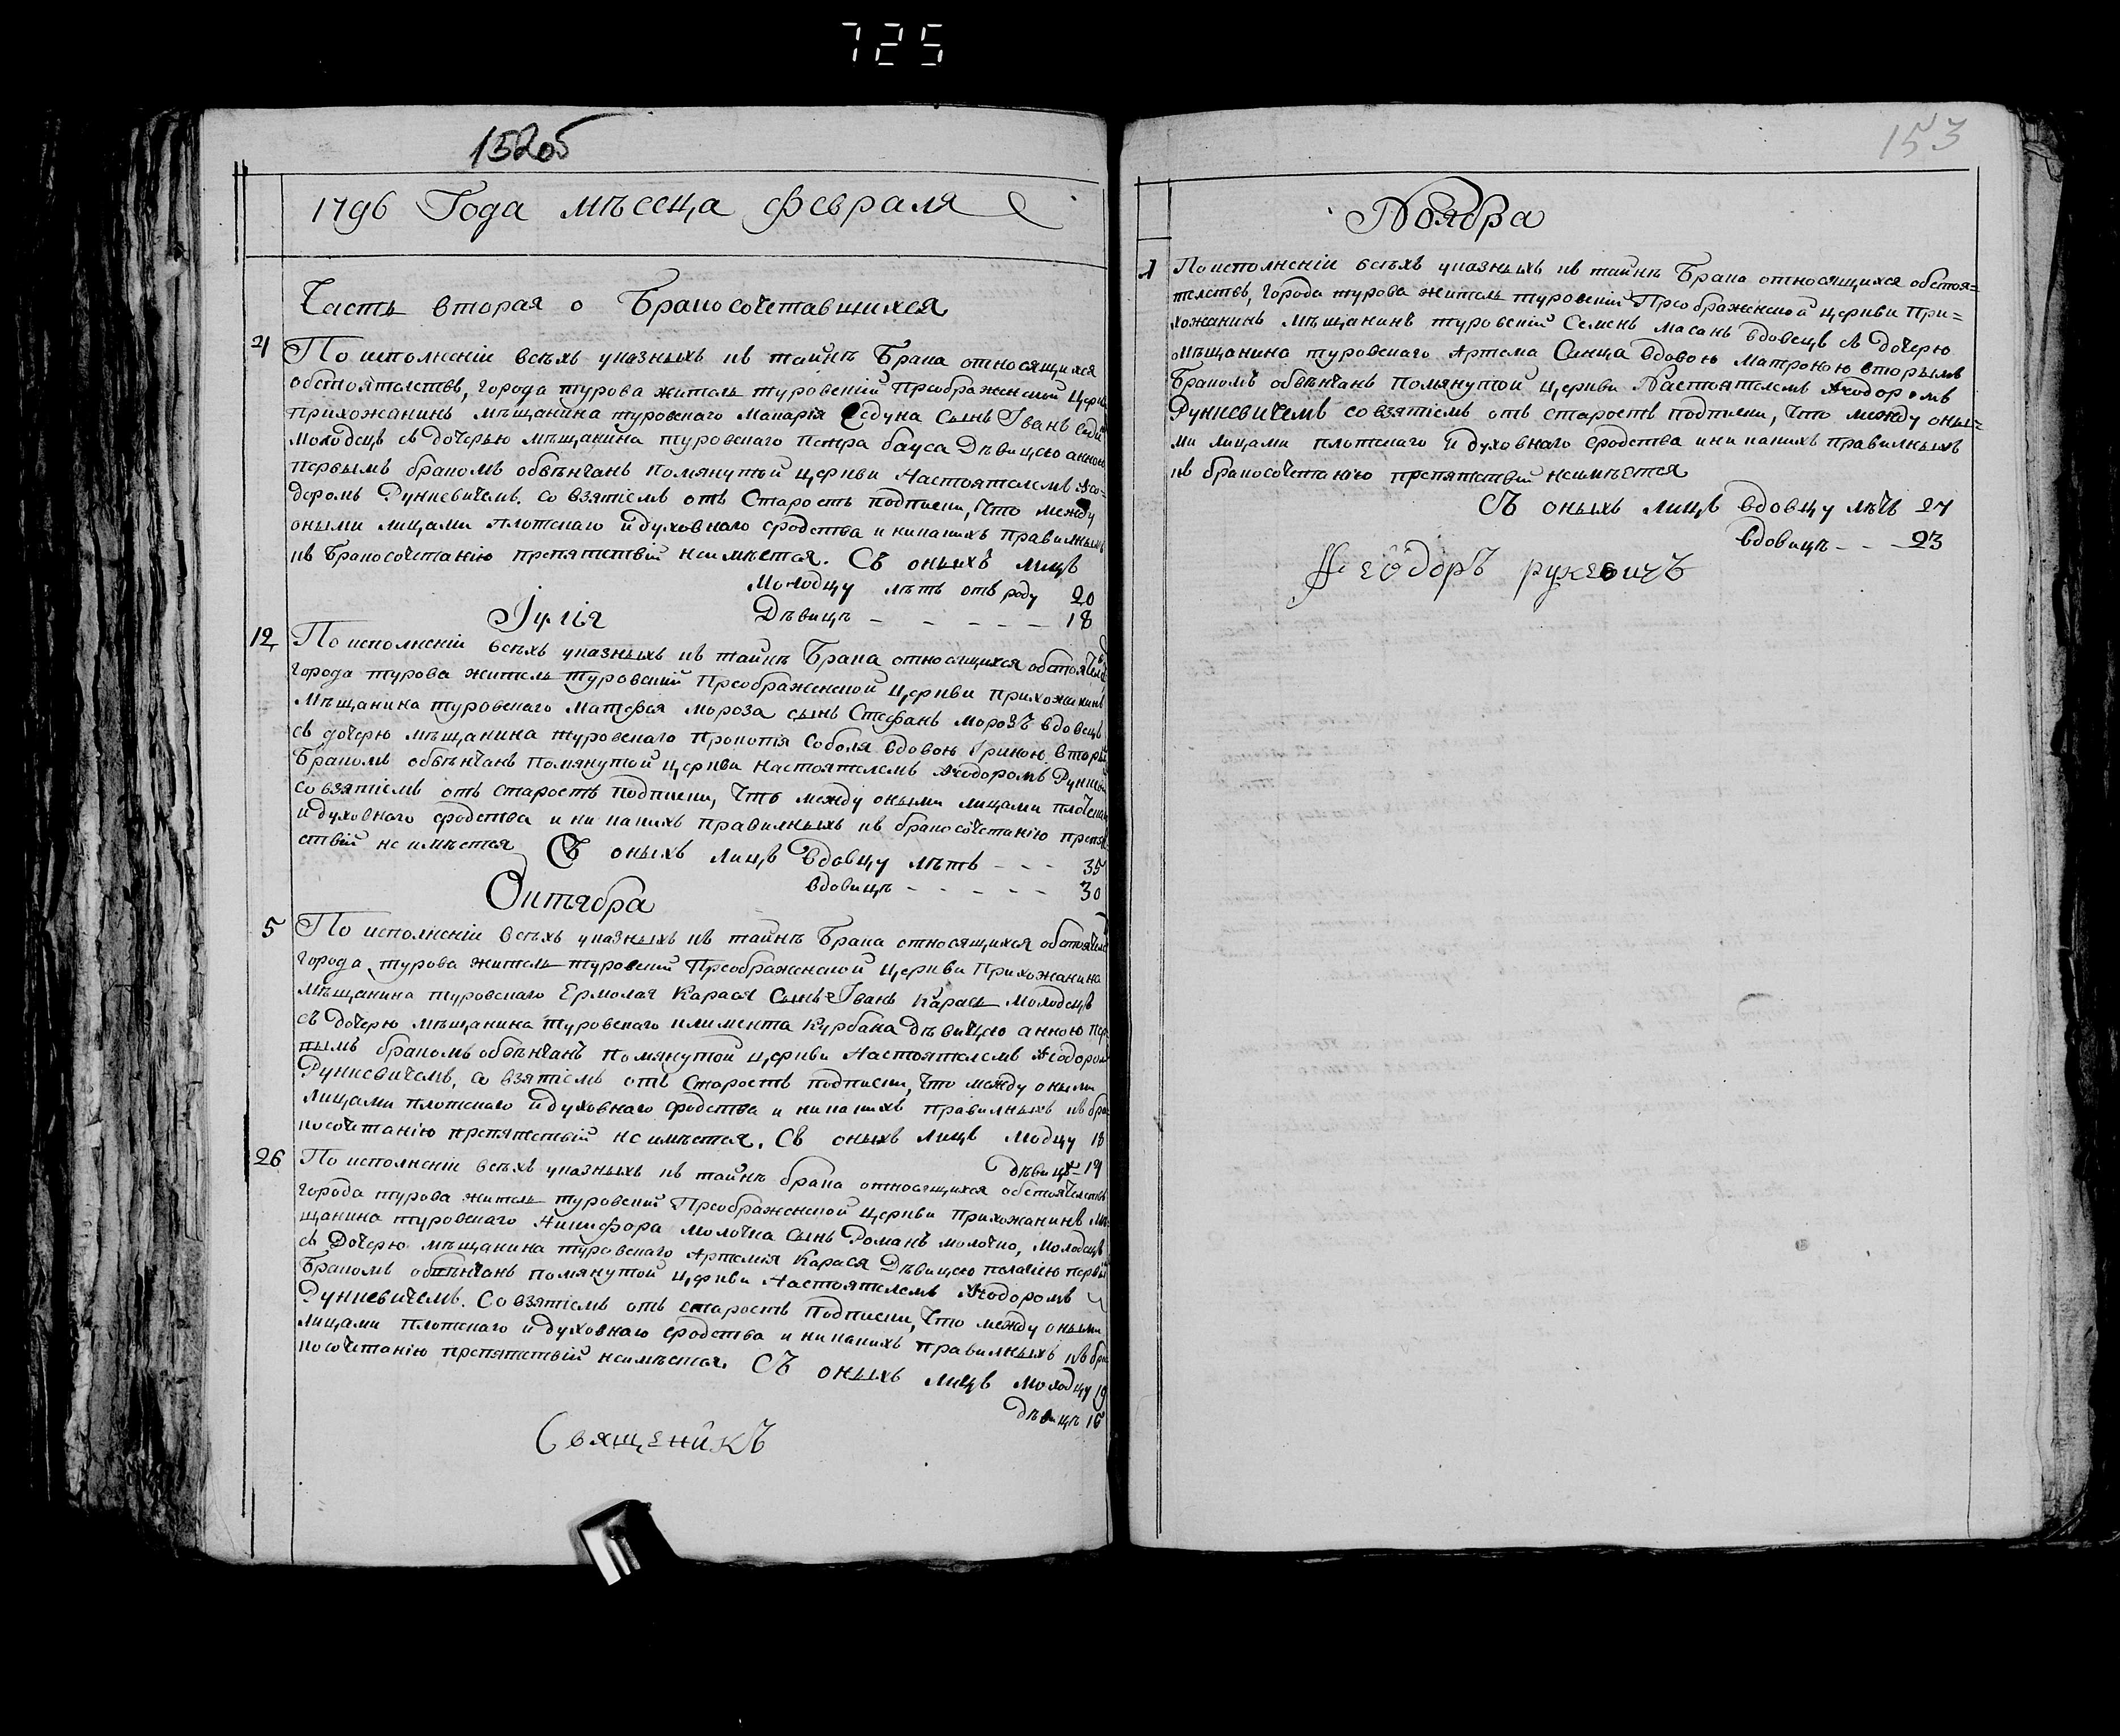 725
152об
1796 Года мѣсеца февраля
Часть вторая о Бракосочетавшихся
21 По исполненіи всѣхъ указныхъ къ тайнѣ Брака относящихся
обстоятелствъ, города турова житель туровскій Преображенской Церкви
прихожанинъ мѣщанина туровскаго Макарія Седуна Сынъ Іванъ
молодецъ съ дочерью мѣщанина туровскаго Петра бауса Дѣвицею анною
первымъ бракомъ обвѣнчанъ помянутой церкви Настоятелемъ Ѳео-
доромъ Рункевичемъ. со взятіемъ отъ Старостъ подписки, Что между
оными лицами плотскаго и духовнаго сродства и никакихъ правилныхъ
къ Бракосочетанію препятствій неимѣется. Съ оныхъ лицъ
молодцу лѣтъ отъ роду 20
Дѣвицѣ - - - - - 18
Іулія
12 По исполненіи всѣхъ указныхъ къ тайнѣ Брака относящихся обстоятелствъ
города турова житель туровскій Преображенской Церкви прихожанинъ
Мѣщанина туровскаго Матфея мороза сынъ Стефанъ морозъ вдовецъ
съ дочерю мѣщанина туровскаго Прокопія Соболя вдовою Іриною вторы
Бракомъ обвѣнчанъ помянутой церкви настоятелемъ Ѳеодоромъ Рункев
со взятіемъ отъ старостъ подписки, Что между оными лицами плотскаго
и духовнаго сродства и ни какихъ правилныхъ къ бракосочетанію препят
ствій не имѣется Съ оныхъ лицъ вдовцу лѣтъ - - - 35
вдовицѣ - - - - - 30
Октября
5 По исполненіи всѣхъ указныхъ къ тайнѣ Брака относящихся обстоятелс
города турова житель туровскій Преображенской церкви Прихожанина
мѣщанина туровскаго Ермолая Карася Сынъ Іванъ Карась молодецъ
съ дочерю мѣщанина туровскаго климента Курбана дѣвицею анною пер-
вымъ бракомъ обвѣнчанъ помянутой церкви Настоятелемъ Ѳеодоромъ
Рункевичемъ, со взятіемъ отъ Старостъ подписки, Что между оными
лицами плотскаго и духовнаго сродства и никакихъ правилныхъ къ бра
косочетанію препятствій не имѣется. Съ оныхъ лицъ модцу 18
дѣвицѣ
26 По исполненіи всѣхъ указныхъ къ тайнѣ брака относящихся обстоятелствъ
города турова житель туровскій Преображенской церкви прихожанинъ мѣ
щанина туровскаго Никифора Молочка Сынъ Романъ молочко, молодецъ
съ Дочерю мѣщанина туровскаго Артемія Карася Дѣвицею пелагіею первы
Бракомъ обвѣнчанъ помянутой церкви Настоятелемъ Ѳеодоромъ
Рункевичемъ. Со взятіемъ отъ старостъ подписки, Что между оными
лицами плотскаго и духовнаго сродства и ни какихъ правилныхъ къ бра
косочетанію препятствій неимѣется. Съ оныхъ лицъ молодцу 19
дѣвицѣ 16
Священикъ
153
Ноября
1 По исполненіи всѣхъ указныхъ къ тайнѣ Брака относящихся обстоя=
телствъ, города турова житель туровскій Преображенской церкви При=
хожанинъ Мѣщанинъ туровскій Семенъ масанъ вдовецъ съ дочерю
мѣщанина туровскаго Артема Синца вдовою Матроною вторымъ
Бракомъ обвѣнчанъ помянутой церкви Настоятелемъ Ѳеодоромъ
Рункевичемъ со взятіемъ отъ старостъ подписки, Что между оны=
ми лицами плотскаго и духовнаго сродства и ни какихъ правилныхъ
къ бракосочетанію препятствій неимѣется
Съ оныхъ лицъ вдовцу лѣтъ 27
вдовицѣ - - - 23
Ѳеодоръ рункевичъ